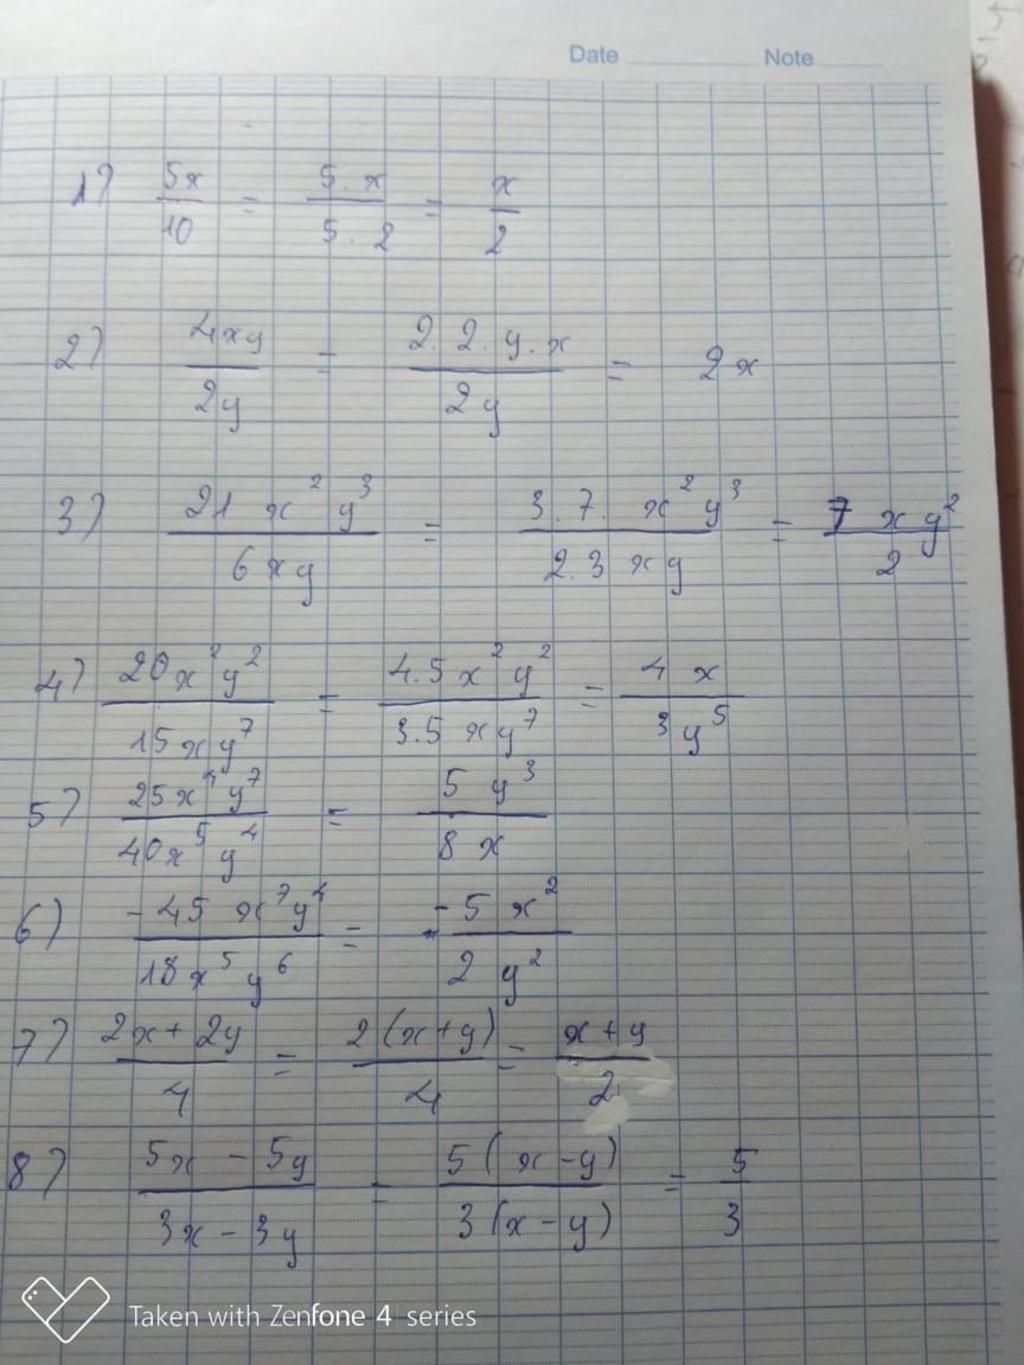 Date Note
1) 5x/10 = 5.x/5.2 = x/2
2) 4xy/2y = 2.2.y.x/2y = 2x
3) 21 x² y³/6xy = 3.7. x² y³/2.3 xy = 7 xy²/2
4) 20x² y²/15xy⁷ = 4.5 x² y²/3.5 xy⁷ = 4 x/3y⁵
5) 25x⁴ y⁷/40x⁵ y⁴ = 5 y³/8 x
6) -45 x⁷y⁴/18x⁵ y⁶ = -5 x²/2 y²
7) 2x + 2y/4 = 2(x+y)/4 = x + y/2
8) 5x - 5y/3x - 3y = 5(x-y)/3(x-y) = 5/3
Taken with Zenfone 4 series